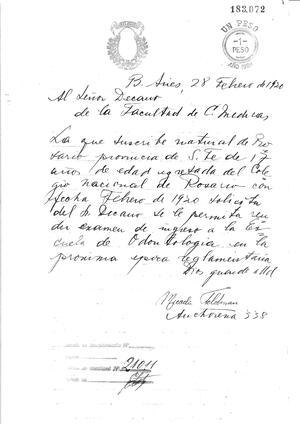 183,072
UN PESO
-1-
PESO
B. Aires, 28 Febrero de 1920
Al Señor Decano
de la Facultad de C. Medicas
La que suscribe natural de Ro-
sario provincia de S. Fe de 17
años de edad egresada del Cole-
gio Nacional de Rosario con
fecha Febrero de 1920 solicita
del S. Decano se le permita ren-
dir examen de ingreso a la Es-
cuela de Odontologia en la
proxima epoca reglamentaria
Dios guarde a Ud
Feldman
Anchorena 338
21011